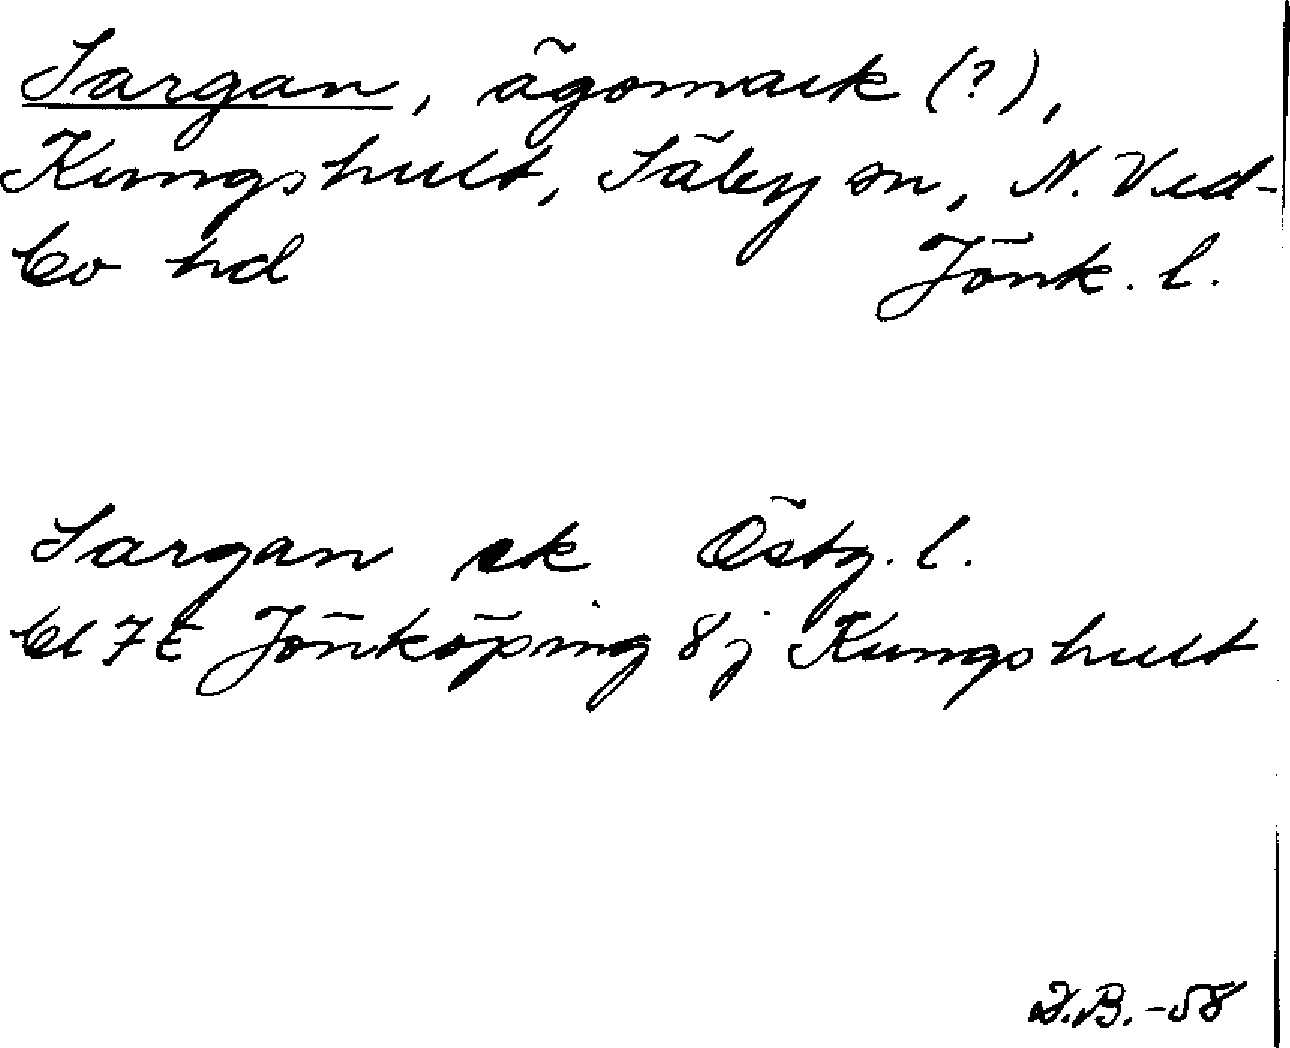 Sargan, ägomark (?),
Kungshult, Säby sn, N. Ved-
bo hd Jönk. l.
Sargan ek Östg. l.
bl 7E Jönköping 8j Kungshult
D.B.-58